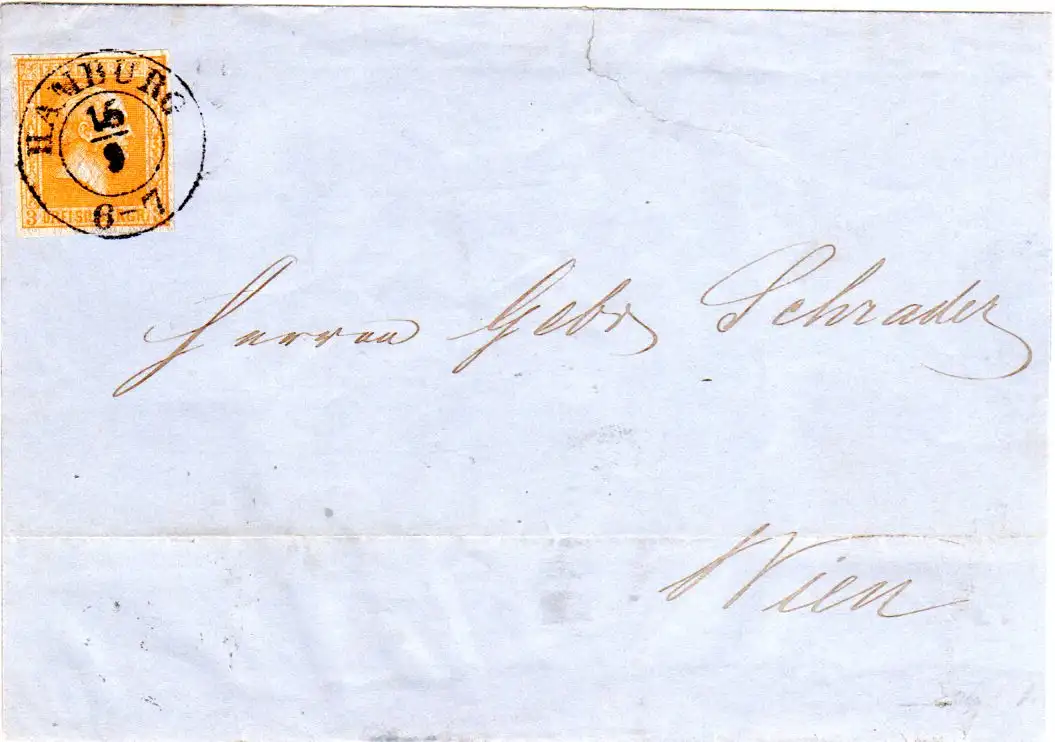 HAMBURG
15
9
6-7
3 DREI SILBERGR. 3
Herren Gebr Schrader
Wien